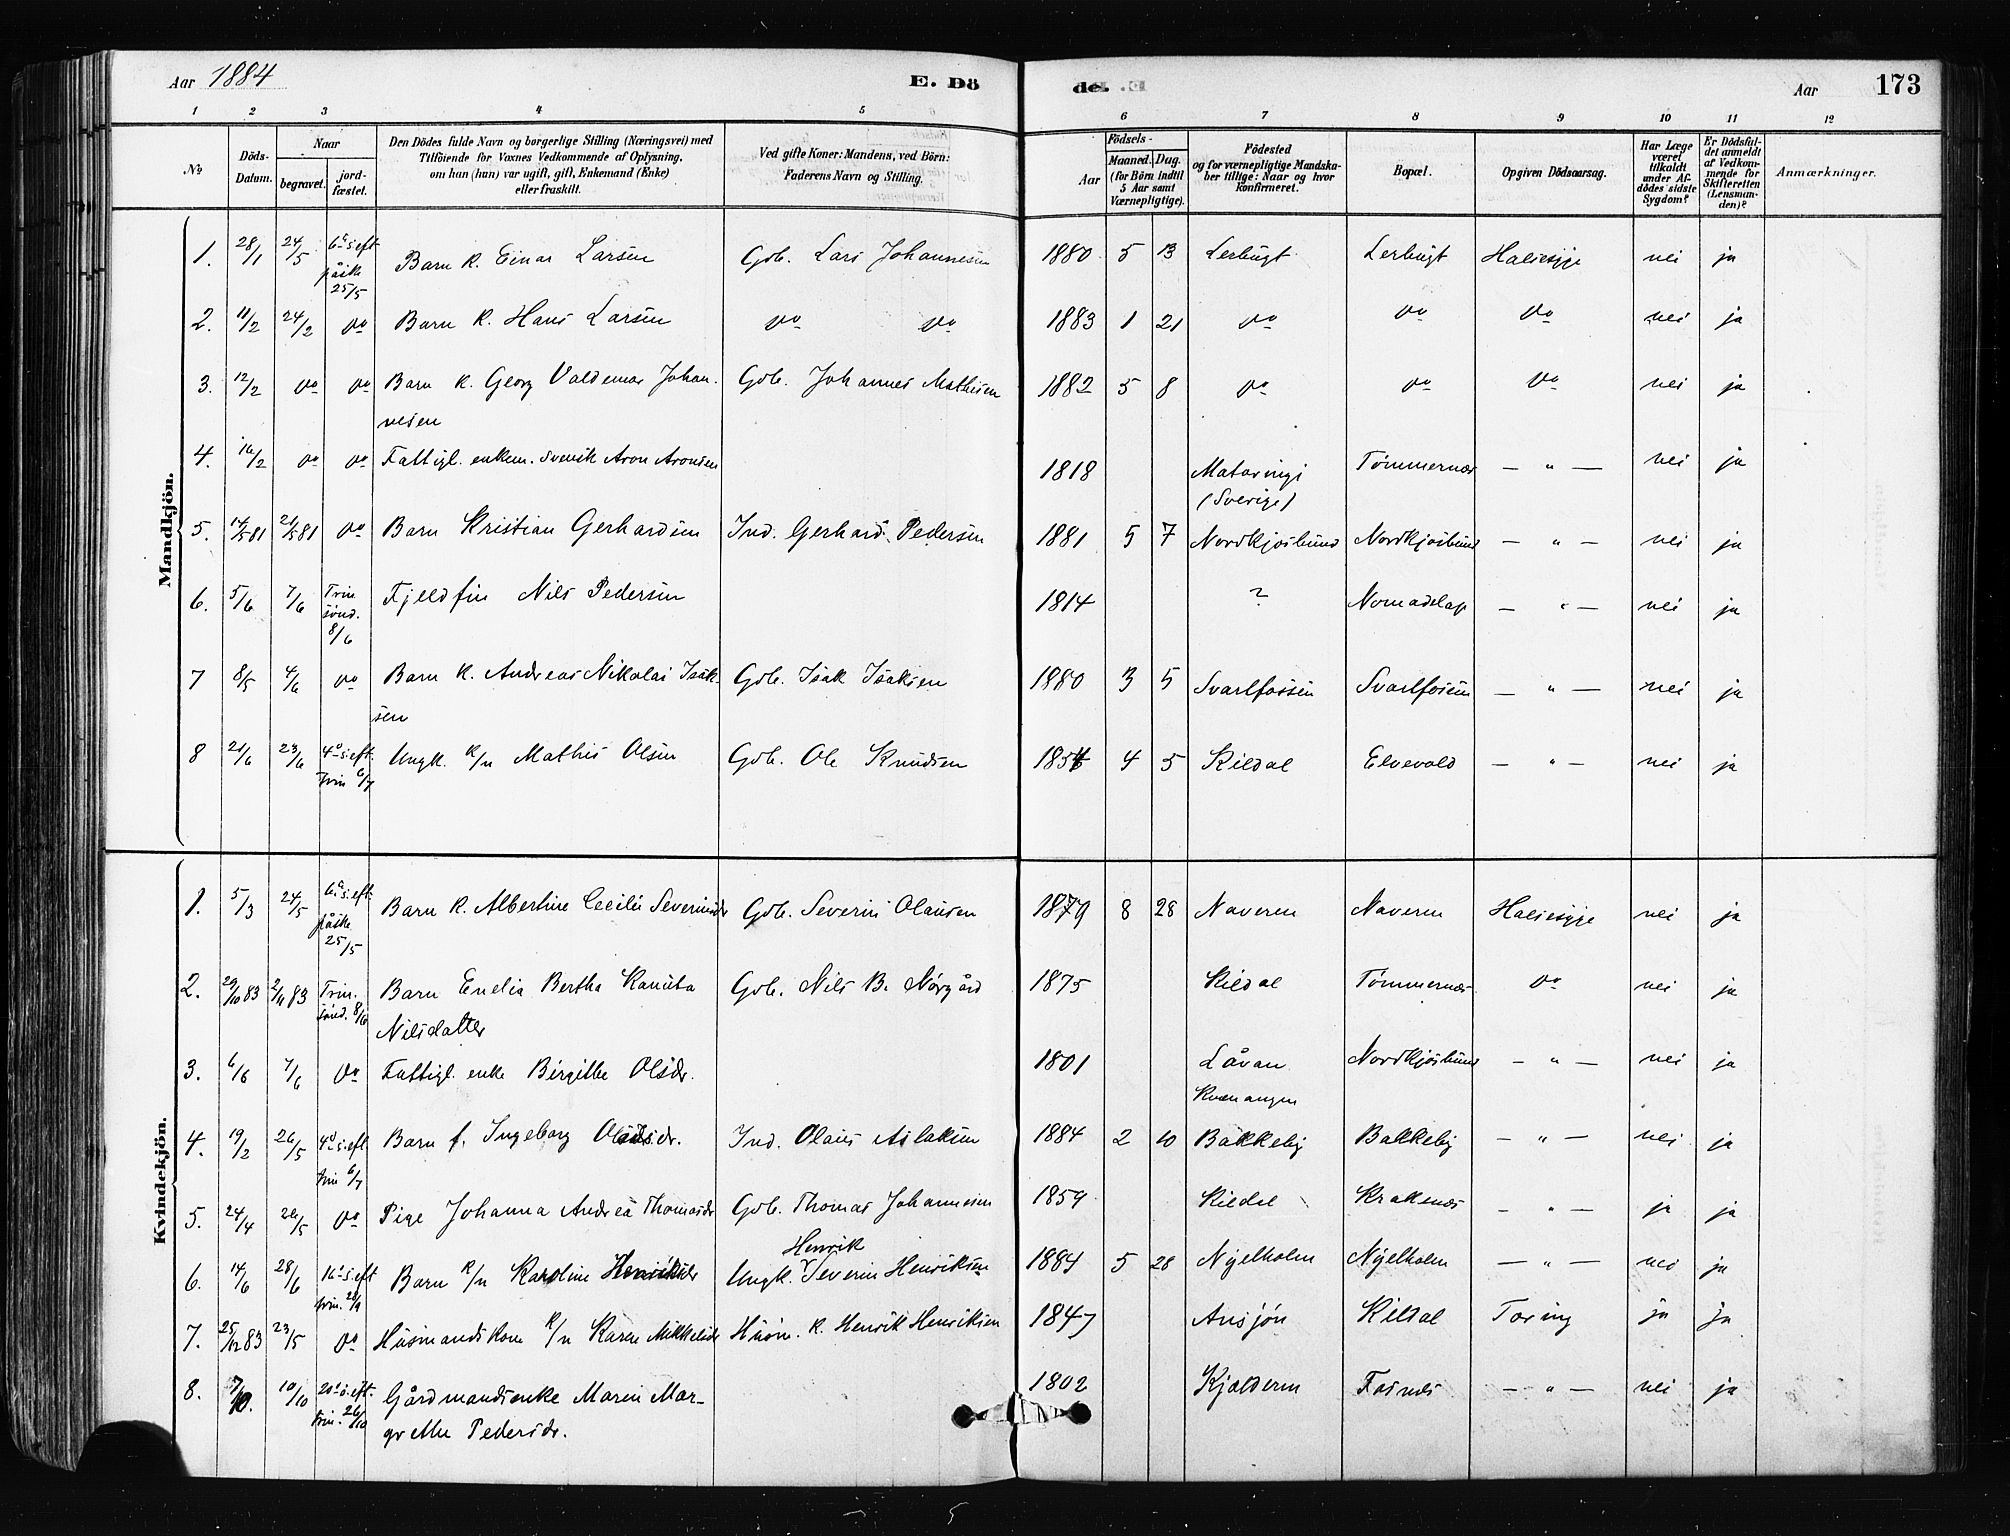 Aar 1884 E. Dö
de. Aar 173
1 2 3 4 5 6 7 8 9 10 11 12
No
Döds-Datum.
Naar
begravet. jord-fæstet.
Den Dödes fulde Navn og borgerlige Stilling (Næringsvei) med
Tilföiende for Voxnes Vedkommende af Oplysning,
om han (hun) var ugift, gift, Enkemand (Enke)
eller fraskilt.
Ved gifte Koner: Mandens, ved Börn:
Faderens Navn og Stilling.
Födsels-
Aar Maaned. Dag.
(for Börn indtil
5 Aar samt
Værnepligtige).
Födested
og for værnepligtige Mandska-
ber tillige: Naar og hvor
konfirmeret.
Bopæl.
Opgiven Dödsaarsag.
Har Læge
været
tilkaldt
under Af-
dödes sidste
Sygdom?
Er Dödsfal-
det anmeldt
af Vedkom-
mende for
Skifteretten
(Lensman-
den)?
Anmærkninger.
Mandkjön.
1. 28/1 24/5 6te s. eft. påske 25/5 Barn k. Einar Larsen Gdb. Lars Johannesen 1880 5 13 Lerbugt Lerbugt Halsesyge nei ja
2. 11/2 24/2 do Barn k. Hans Larsen do do 1883 1 21 do do do nei ja
3. 12/2 do do Barn k. Georg Valdemar Johan- Gdb. Johannes Mathisen 1882 5 8 do do do nei ja
nesen
4. 16/2 do do Fattigl. enkem. svensk Aron Aronsen 1818 Mataringi Tømmernæs — " — nei ja
(Sverige)
5. 14/5 81 21/5 81 do Barn Kristian Gerhardsen Ind. Gerhard Pedersen 1881 5 7 Nordkjosbund Nordkjosbund — " — nei ja
6. 5/6 7/6 Trin sønd. 8/6 Fjeldfin Nils Pedersen 1814 ? Nomadelap — " — nei ja
7 8/5 4/6 do Barn k. Andreas Nikolai Isak- Gdb. Isak Isaksen 1880 3 5 Svartfossen Svartfossen — " — nei ja
sen
8 21/6 23/6 4de s. eft. trin 6/7 Ungk. k/n Mathis Olsen Gdb. Ole Knudsen 4 5 Kildal Elvevold — " — nei ja
Kvindekjön.
1. 5/3 24/5 6te s. eft. påske 25/5 Barn k. Albertine Cecilie Severinsdr Gdb. Severin Olausen 1879 8 28 Naveren Naveren Halsesyge nei ja
2. 29/10 83 2/11 83 Trin. sønd. 8/6 Barn Enelia Bertha Kanuta Gdb. Nils B. Nørgård 1875 Kildal Tømmernæs do nei ja
Nilsdatter
3. 6/6 7/6 do Fattigl. enke Birgithe Olsdr. 1801 Låvan Nordkjosbund — " — nei ja
Kvænangen
4. 19/2 26/5 4de s. eft. trin 6/7 Barn f. Ingeborg Olausdr. Ind. Olaus Aslaksen 1884 2 10 Bakkeby Bakkeby — " — nei ja
5. 24/4 26/5 do Pige Johanna Andrea Thomasdr Gdb. Thomas Johannesen 1859 Kildal Kraknæs — " — ja ja
Henrik
6. 14/6 28/6 16de s. eft trin. 28/9 Barn k/n Karoline Henriksdr Ungk. Severin Henriksen 1884 5 28 Nyelholm Nyelholm — " — nei ja
7. 25/12 83 23/5 do Husmandskone k/n Karen Mikkelsdr Husm. k. Henrik Henriksen 1847 Ansjøn Kildal Tæring ja ja
8. 7/10. 10/10 20de s. eft. trin. 26/10 Gårdmandsenke Maren Mar- 1802 Kjolderen Fosnæs — " — nei ja
grethe Pedersdr.